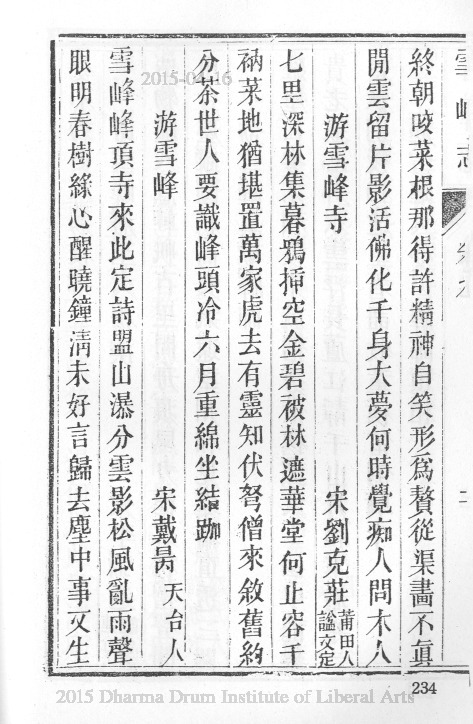 雪峰志
終朝咬菜根那得許精神自笑形爲贅從渠畵不眞
閒雲留片影活佛化千身大夢何時覺痴人問木人
游雪峰寺 宋劉克莊 莆田人 諡文定
七里深林集暮鴉揷空金碧被林遮華堂何止容千
衲菜地猶堪置萬家虎去有靈知伏弩僧來敘舊約
分茶世人要識峰頭冷六月重綿坐結跏
游雪峰 宋戴昺 天台人
雪峰峰頂寺來此定詩盟山瀑分雲影松風亂雨聲
眼明春樹綠心醒曉鐘淸未好言歸去塵中事又生
二
234
2015-04-16
2015 Dharma Drum Institute of Liberal Arts